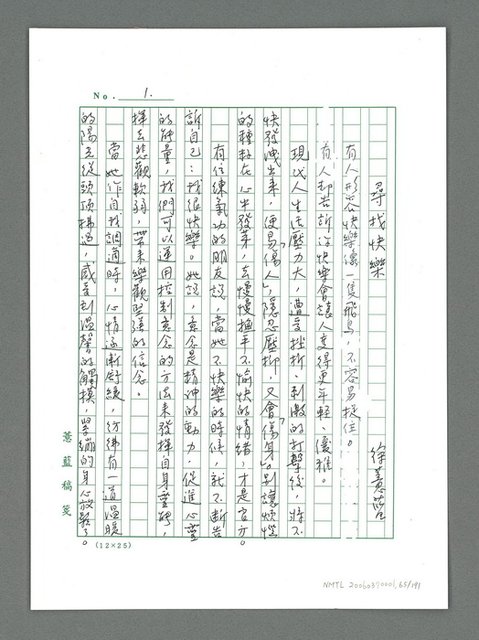 No. 1.
尋找快樂
徐蕙藍
有人形容快樂像一隻飛鳥，不容易捉住。
有人却告訴你快樂會讓人變得更年輕、優雅。
現代人生活壓力大，遭受挫折、刺激的打擊後，將不
快發洩出來，便易「傷人」，隱忍壓抑，又會「傷身」。別讓煩惱
的種籽在心中發芽，去慢慢撫平不愉快的情緒，才是良方。
有位練氣功的朋友說，當她不快樂的時候，就不斷告
訴自己：我很快樂。她說，意念是精神的動力，促進心靈
的能量，我們可以運用控制意念的方法來發揮自身靈體，
揮去悲觀軟弱，帶來樂觀堅強的信念。
當她作自我調適時，心情逐漸舒緩，彷彿有一道溫暖
的陽光從頭頂掃過，感受到溫馨的觸摸，緊繃的身心放鬆了。
蕙藍稿箋
(12×25)
NMTL 20060390001, 65/191